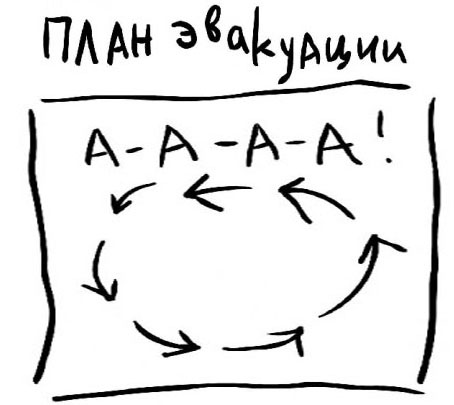 ПЛАН эвакуации
А-А-А-А!